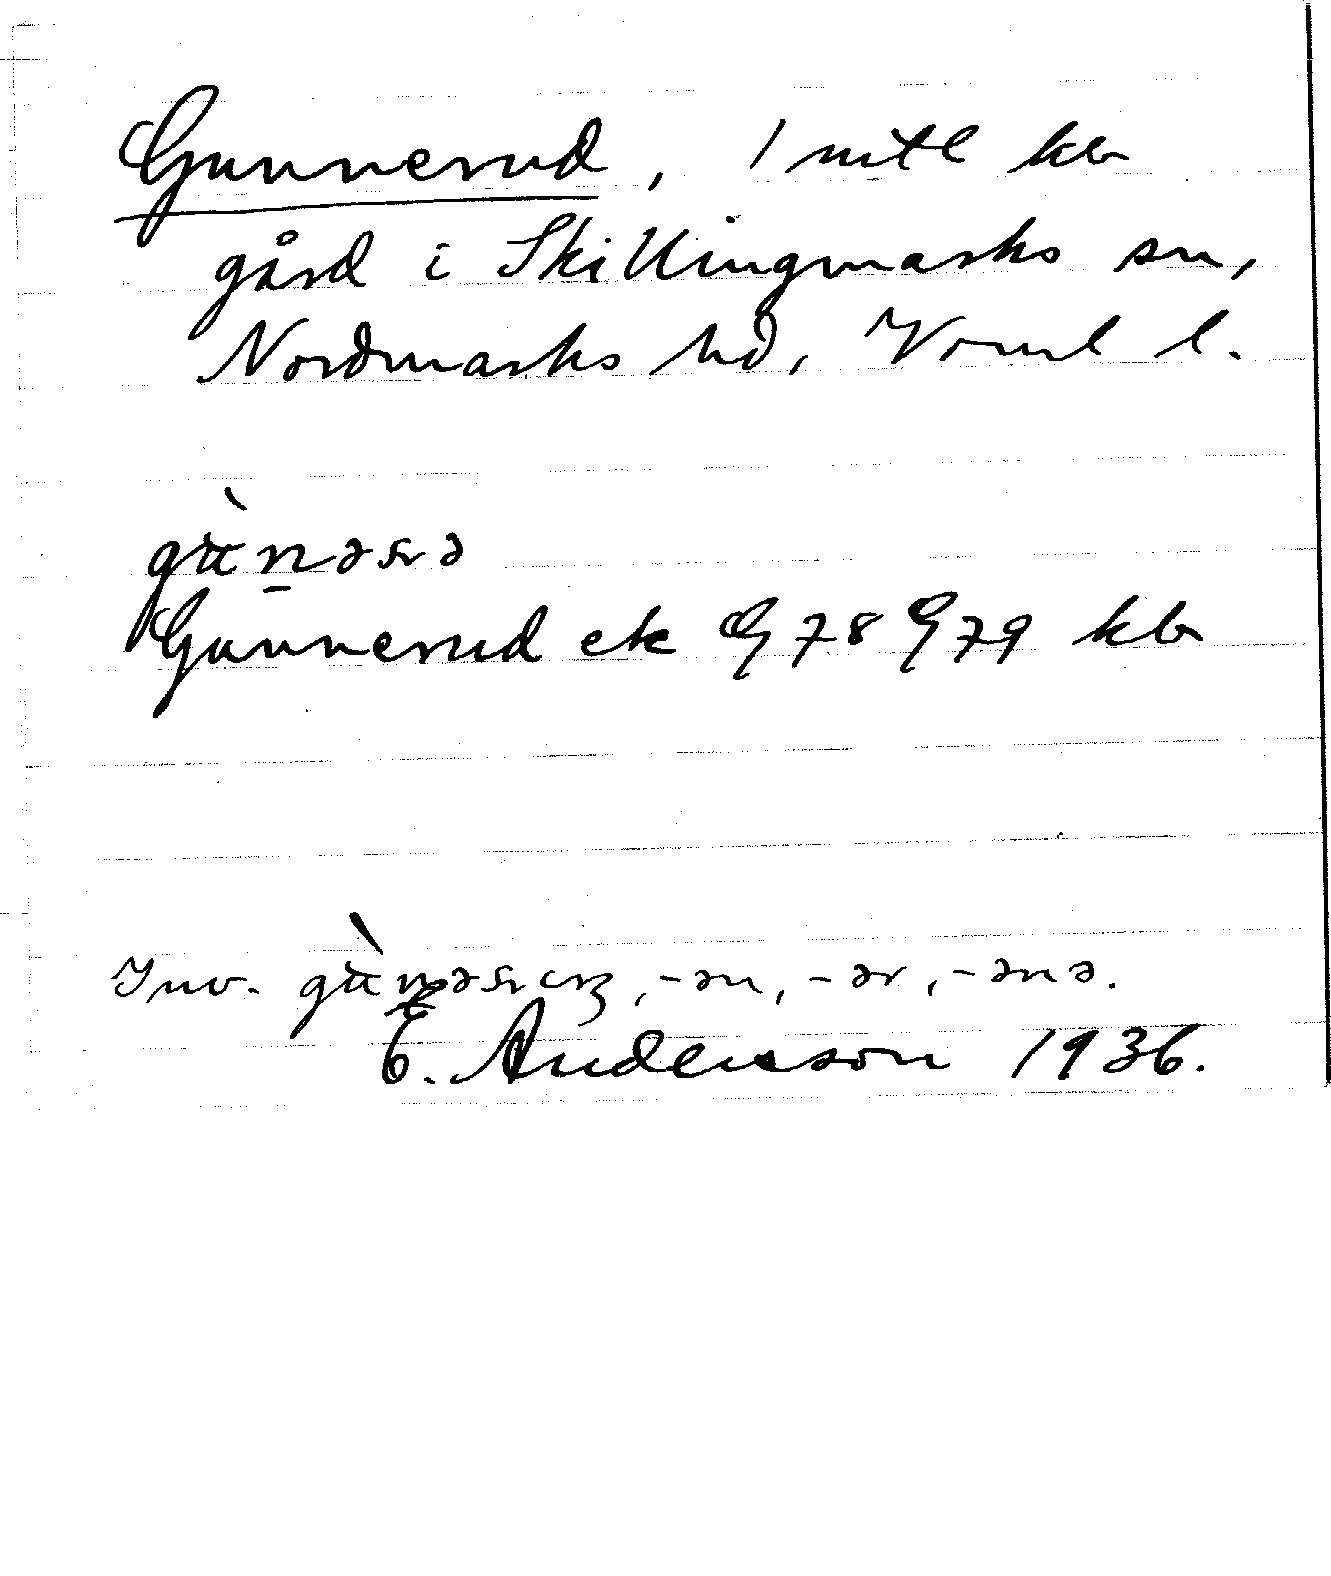 Gunnerud, 1 mtl kb
gård i Skillingmarks sn,
Nordmarks hd, Vrml l.
Gunnerud ek G 78 G 79 kb
Inv. -ən, -ər, -ənə.
E. Andersson 1936.